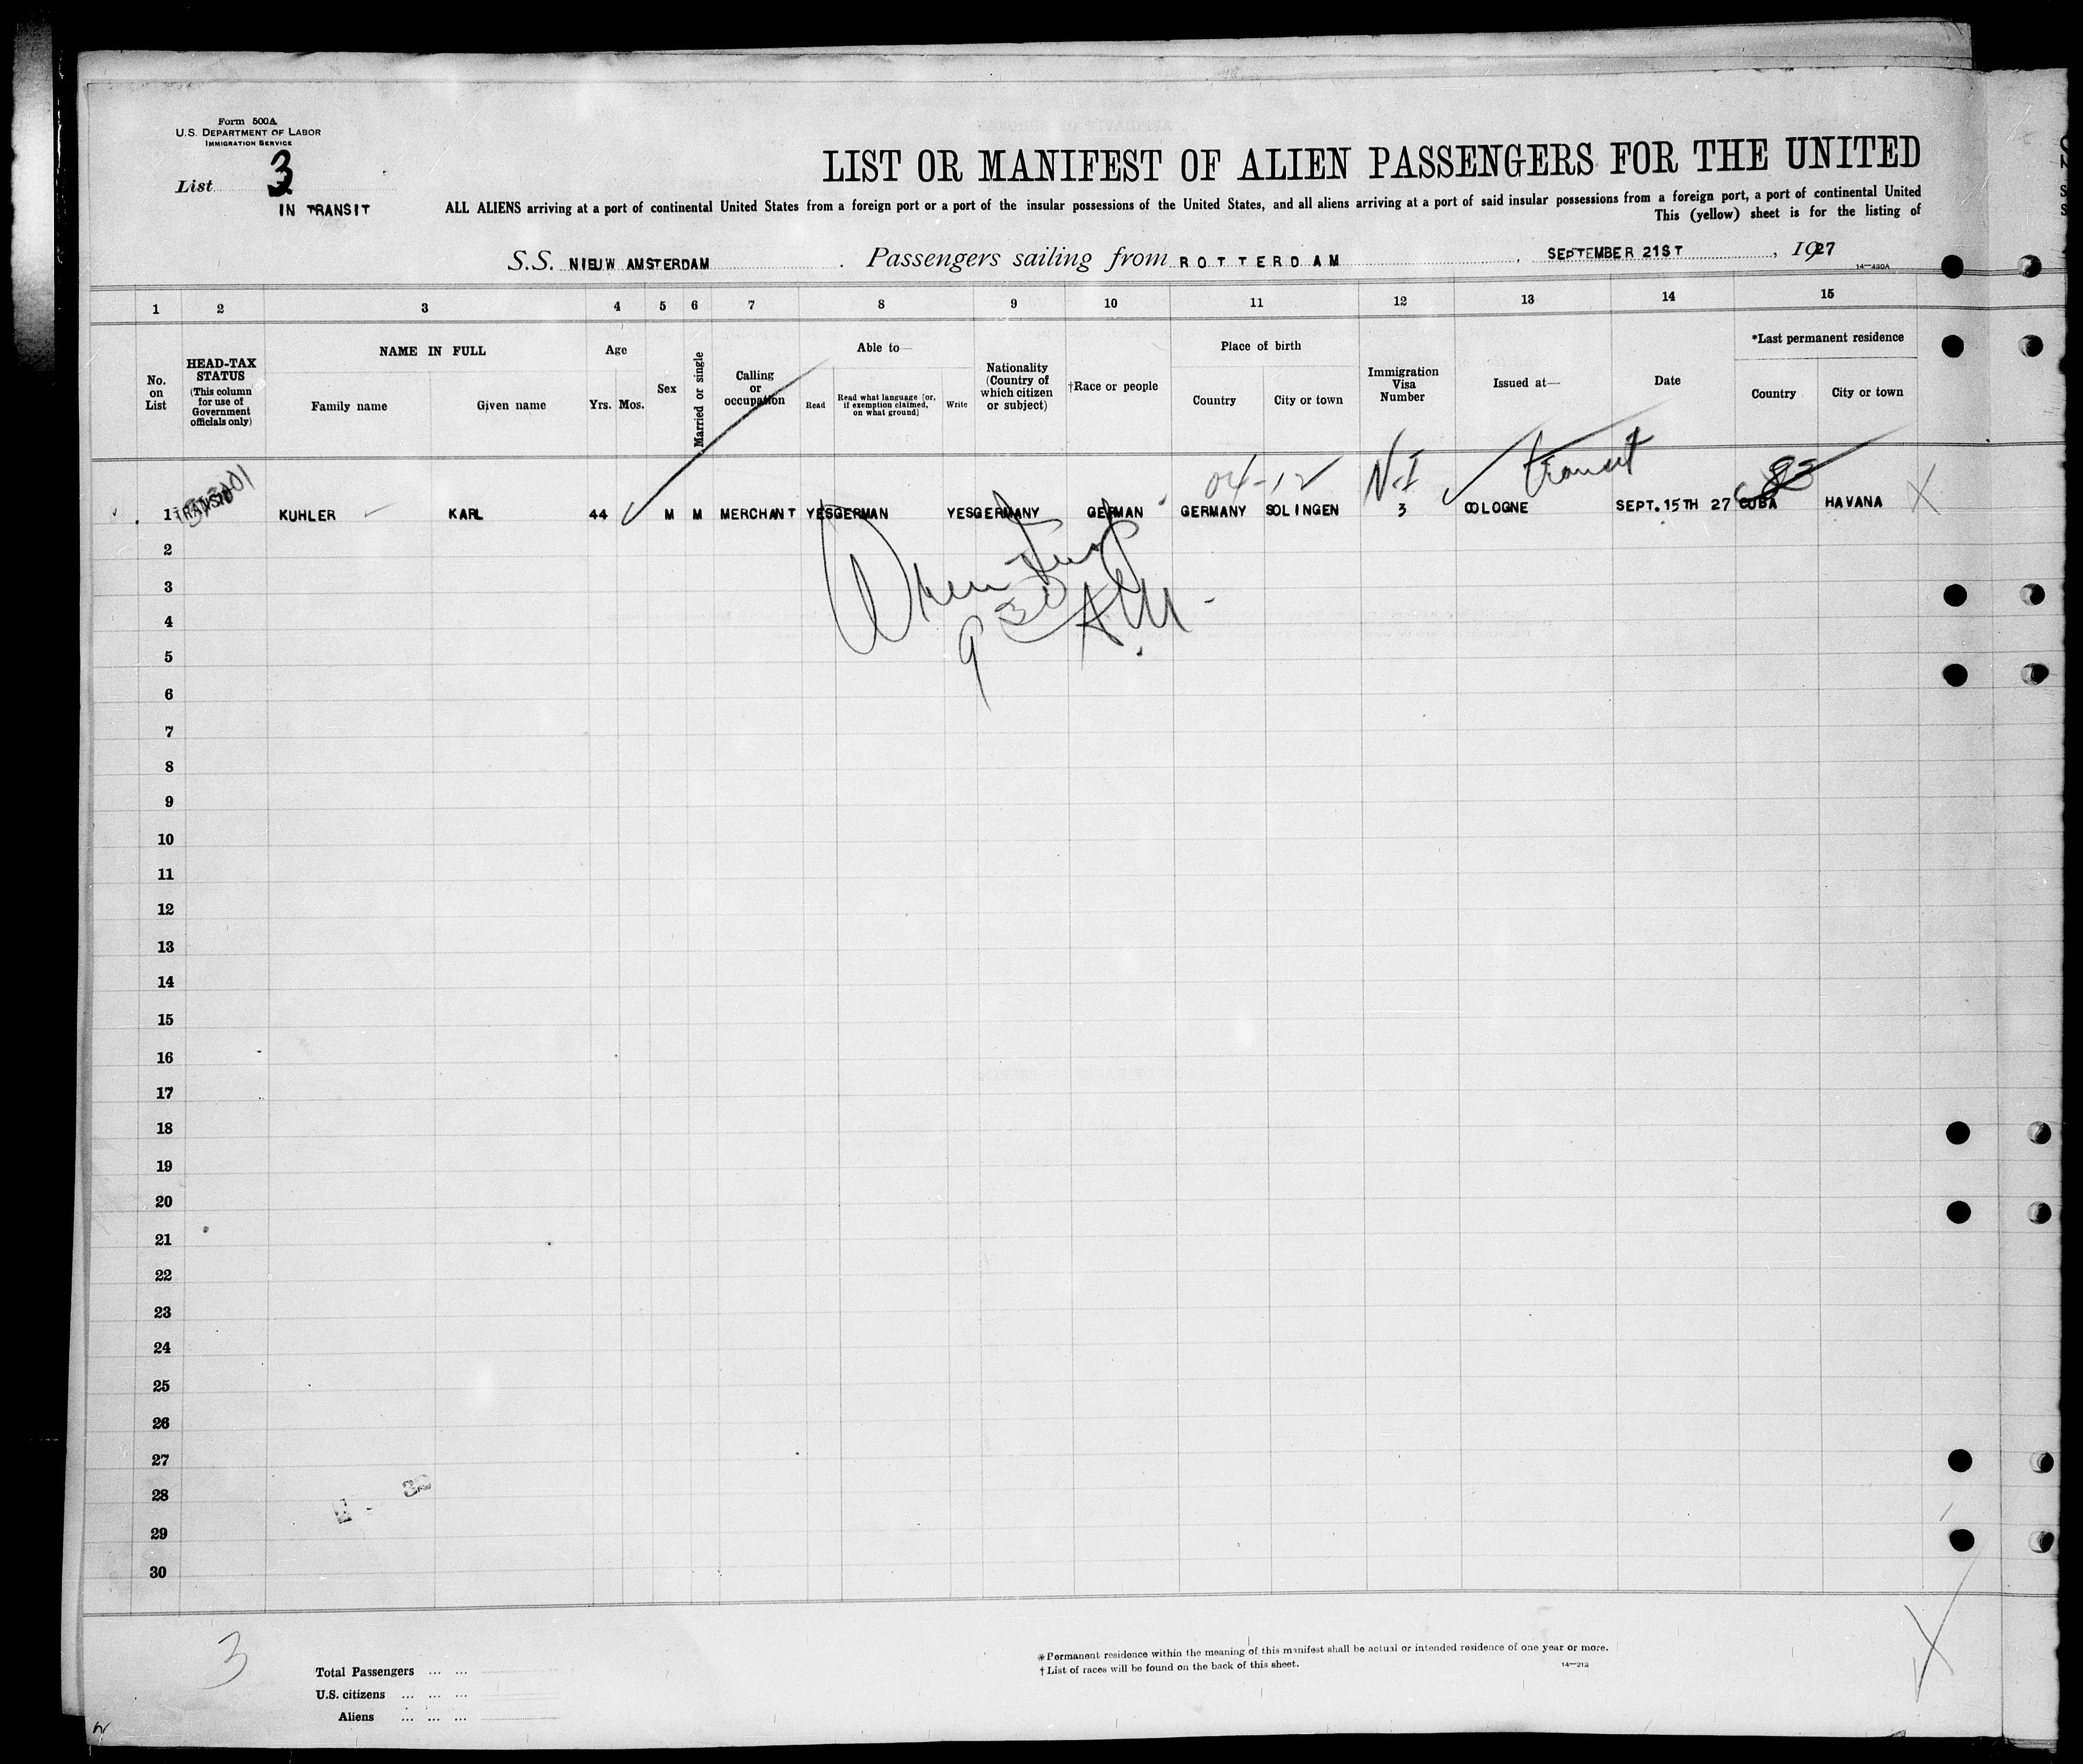 Form 500A
U.S. DEPARTMENT OF LABOR
IMMIGRATION SERVICE
List 3
IN TRANSIT
LIST OR MANIFEST OF ALIEN PASSENGERS FOR THE UNITED
ALL ALIENS arriving at a port of continental United States from a foreign port or a port of the insular possessions of the United States, and all aliens arriving at a port of said insular possessions from a foreign port, a port of continental United
This (yellow) sheet is for the listing of
S.S. NIEUW AMSTERDAM Passengers sailing from ROTTERDAM, SEPTEMBER 21ST, 1927
14—430A
1 2 3 4 5 6 7 8 9 10 11 12 13 14 15
No. on List
HEAD-TAX STATUS
(This column for use of Government officials only)
NAME IN FULL
Family name Given name
Age
Yrs. Mos.
Sex
Married or single
Calling or occupation
Able to—
Read
Read what language [or, if exemption claimed, on what ground]
Write
Nationality (Country of which citizen or subject)
†Race or people
Place of birth
Country City or town
Immigration Visa Number
Issued at—
Date
*Last permanent residence
Country City or town
04-12 N-I transit
1 TRANSIT KUHLER KARL 44 M M MERCHANT YES GERMAN YES GERMANY GERMAN GERMANY SOLINGEN 3 COLOGNE SEPT. 15TH 27 CUBA HAVANA X
2
3
4
5
6
7
8
9
10
11
12
13
14
15
16
17
18
19
20
21
22
23
24
25
26
27
28
29
30
3
Total Passengers ... ...
U.S. citizens ... ... ...
Aliens ... ... ...
*Permanent residence within the meaning of this manifest shall be actual or intended residence of one year or more.
†List of races will be found on the back of this sheet.
14—213
X